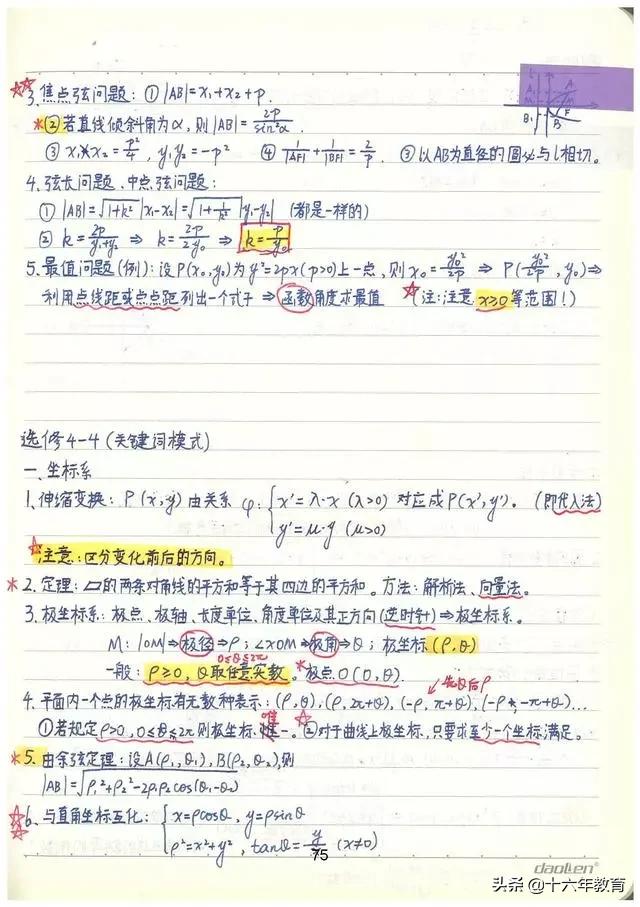 3. 焦点弦问题: ① |AB| = x₁+x₂+p.
② 若直线倾斜角为α, 则|AB| = 2p/sin²α.
③ x₁x₂ = p²/4, y₁y₂ = -p² ④ 1/|AF| + 1/|BF| = 2/p. ⑤ 以AB为直径的圆必与l相切。
4. 弦长问题、中点弦问题:
① |AB| = √(1+k²) |x₁-x₂| = √(1+1/k²) |y₁-y₂| (都是一样的)
② k = 2p/(y₁+y₂) ⇒ k = 2p/2y₀ ⇒ k = p/y₀
5. 最值问题(例): 设P(x₀,y₀)为y²=2px(p>0)上一点, 则x₀ = y₀²/2p ⇒ P(y₀²/2p, y₀) ⇒
利用点线距或点点距列出一个式子 ⇒ 函数角度求最值 (注:注意x≥0等范围!)
选修4-4 (关键词模式)
一、坐标系
1. 伸缩变换: P(x,y)由关系 φ: { x′=λ·x (λ>0) 对应成P(x′,y′)。 (即代入法)
y′=μ·y (μ>0)
注意: 区分变化前后的方向。
2. 定理: ▱的两条对角线的平方和等于其四边的平方和。方法: 解析法、向量法。
3. 极坐标系: 极点、极轴、长度单位、角度单位及其正方向(逆时针) ⇒ 极坐标系。
M: |OM| ⇒ 极径 ⇒ ρ; ∠xOM ⇒ 极角 ⇒ θ; 极坐标(ρ,θ)
0≤θ≤2π
一般: ρ≥0, θ取任意实数。 极点O(0,θ).
先θ后ρ
4. 平面内一个点的极坐标有无数种表示: (ρ,θ), (ρ,2π+θ), (-ρ,π+θ), (-ρ,-π+θ)...
① 若规定ρ>0, 0≤θ≤2π则极坐标唯一。 ② 对于曲线上极坐标, 只要求至少一个坐标满足。
5. 由余弦定理: 设A(ρ₁,θ₁), B(ρ₂,θ₂), 则
|AB| = √(ρ₁²+ρ₂²-2ρ₁ρ₂cos(θ₁-θ₂))
6. 与直角坐标互化: { x=ρcosθ, y=ρsinθ
ρ²=x²+y², tanθ=y/x (x≠0)
75
daolen®
头条@十六年教育